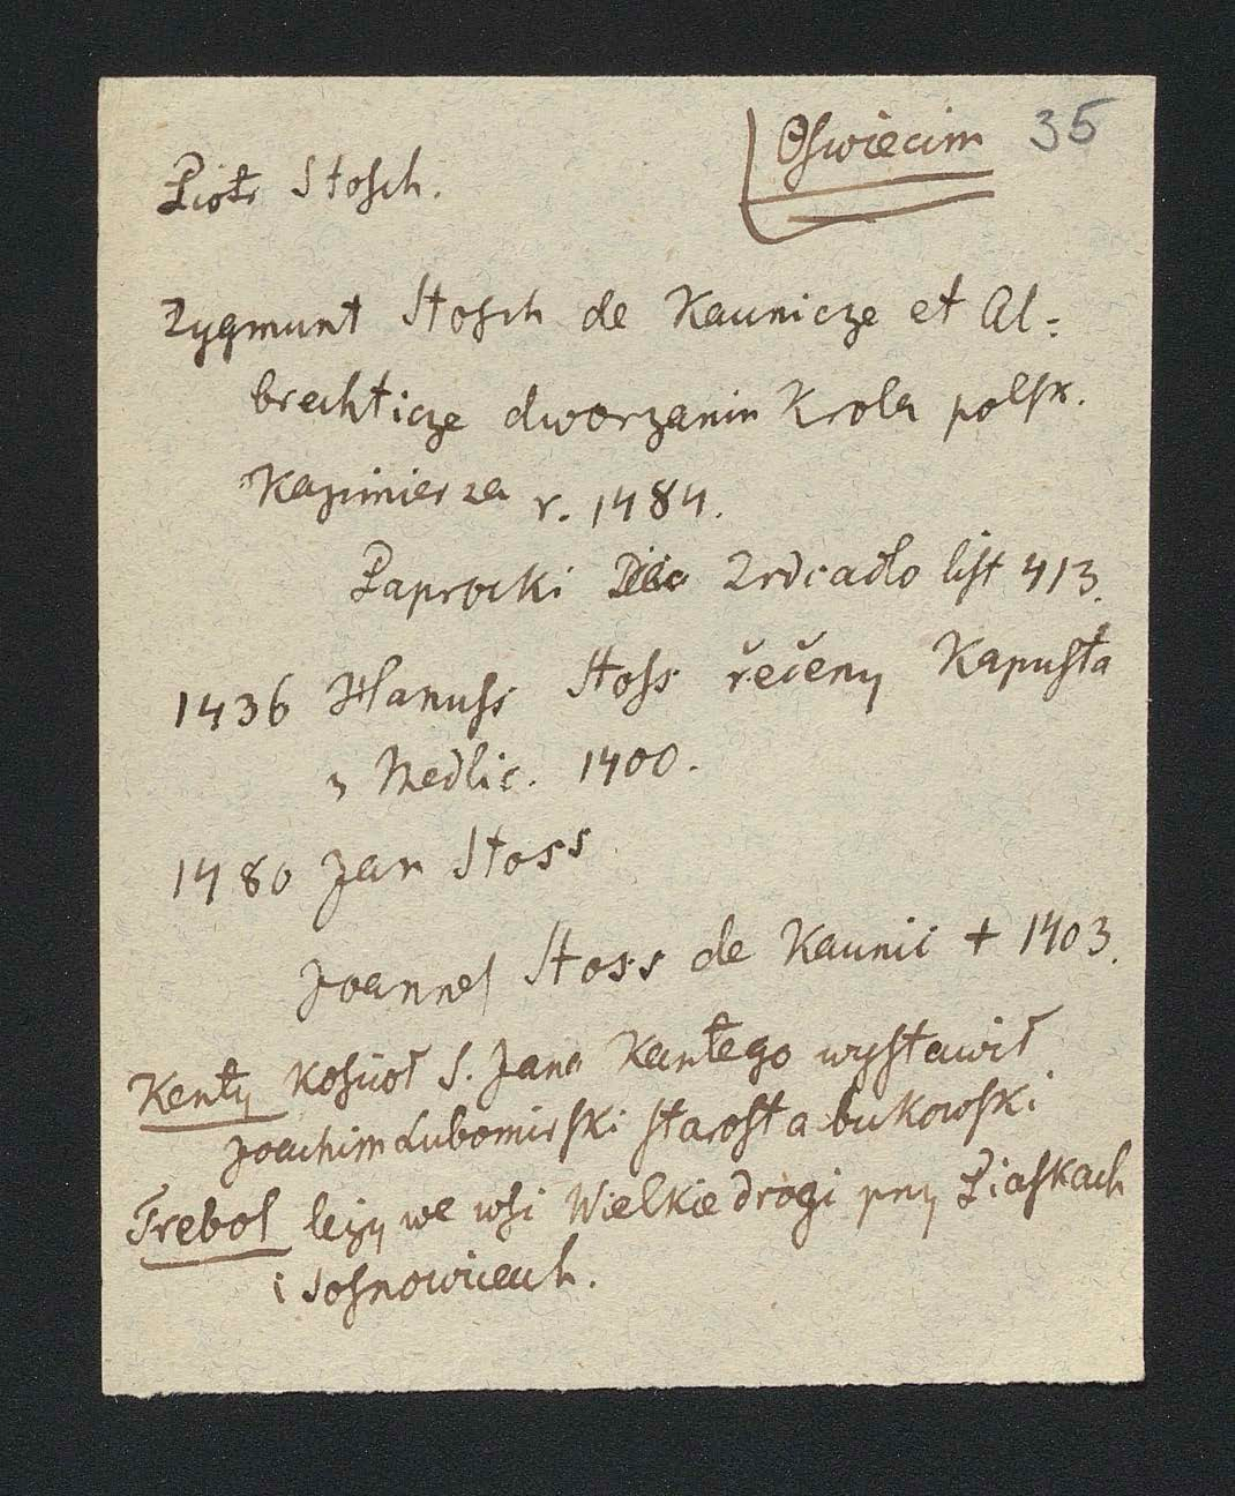 Oswiecim 35
Piotr Stosch.
Zygmunt Stosch de Kaunicze et Al=
brechticze dworzanin Krola polsk.
Kazimierza r. 1484.
Paprocki Zrdcadlo list 413.
1436 Hanuss Stoss řečeny Kapusta
z Nedlic. 1400.
1480 Jan Stoss
Joannes Stoss de Kaunic + 1403.
Kenty Koscioł S. Jana Kantego wystawił
Joachim Lubomirski starosta bukowski
Trebol leży we wsi Wielkie drogi przy Piaskach
i Sosnowicach.